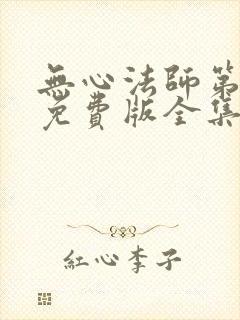 無心法師第
免費版全集
紅心李子